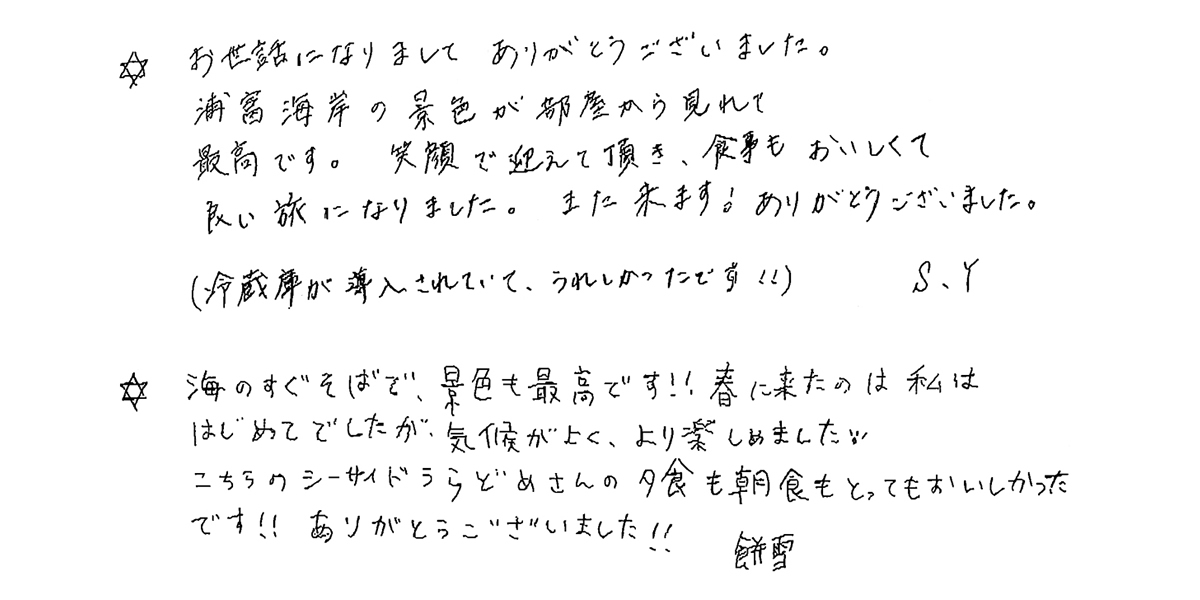 ☆ お世話になりまして ありがとうございました。
浦富海岸の景色が部屋から見れて
最高です。 笑顔で迎えて頂き、食事も おいしくて
良い旅になりました。 また来ます! ありがとうございました。
(冷蔵庫が導入されていて、うれしかったです!!) S、Y
☆ 海のすぐそばで、景色も最高です!! 春に来たのは私は
はじめてでしたが、気候がよく、より楽しめました
こちらのシーサイドうらどめさんの夕食も朝食もとってもおいしかった
です!! ありがとうございました!!
餅雪